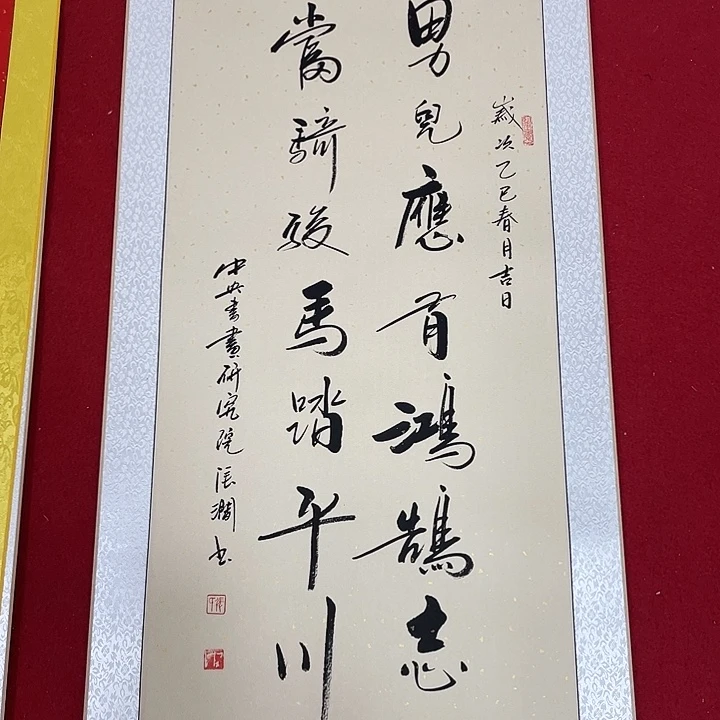 歲次乙巳春月吉日
男兒應有鴻鵠志
當騎駿馬踏平川
中央書畫研究院張澗书